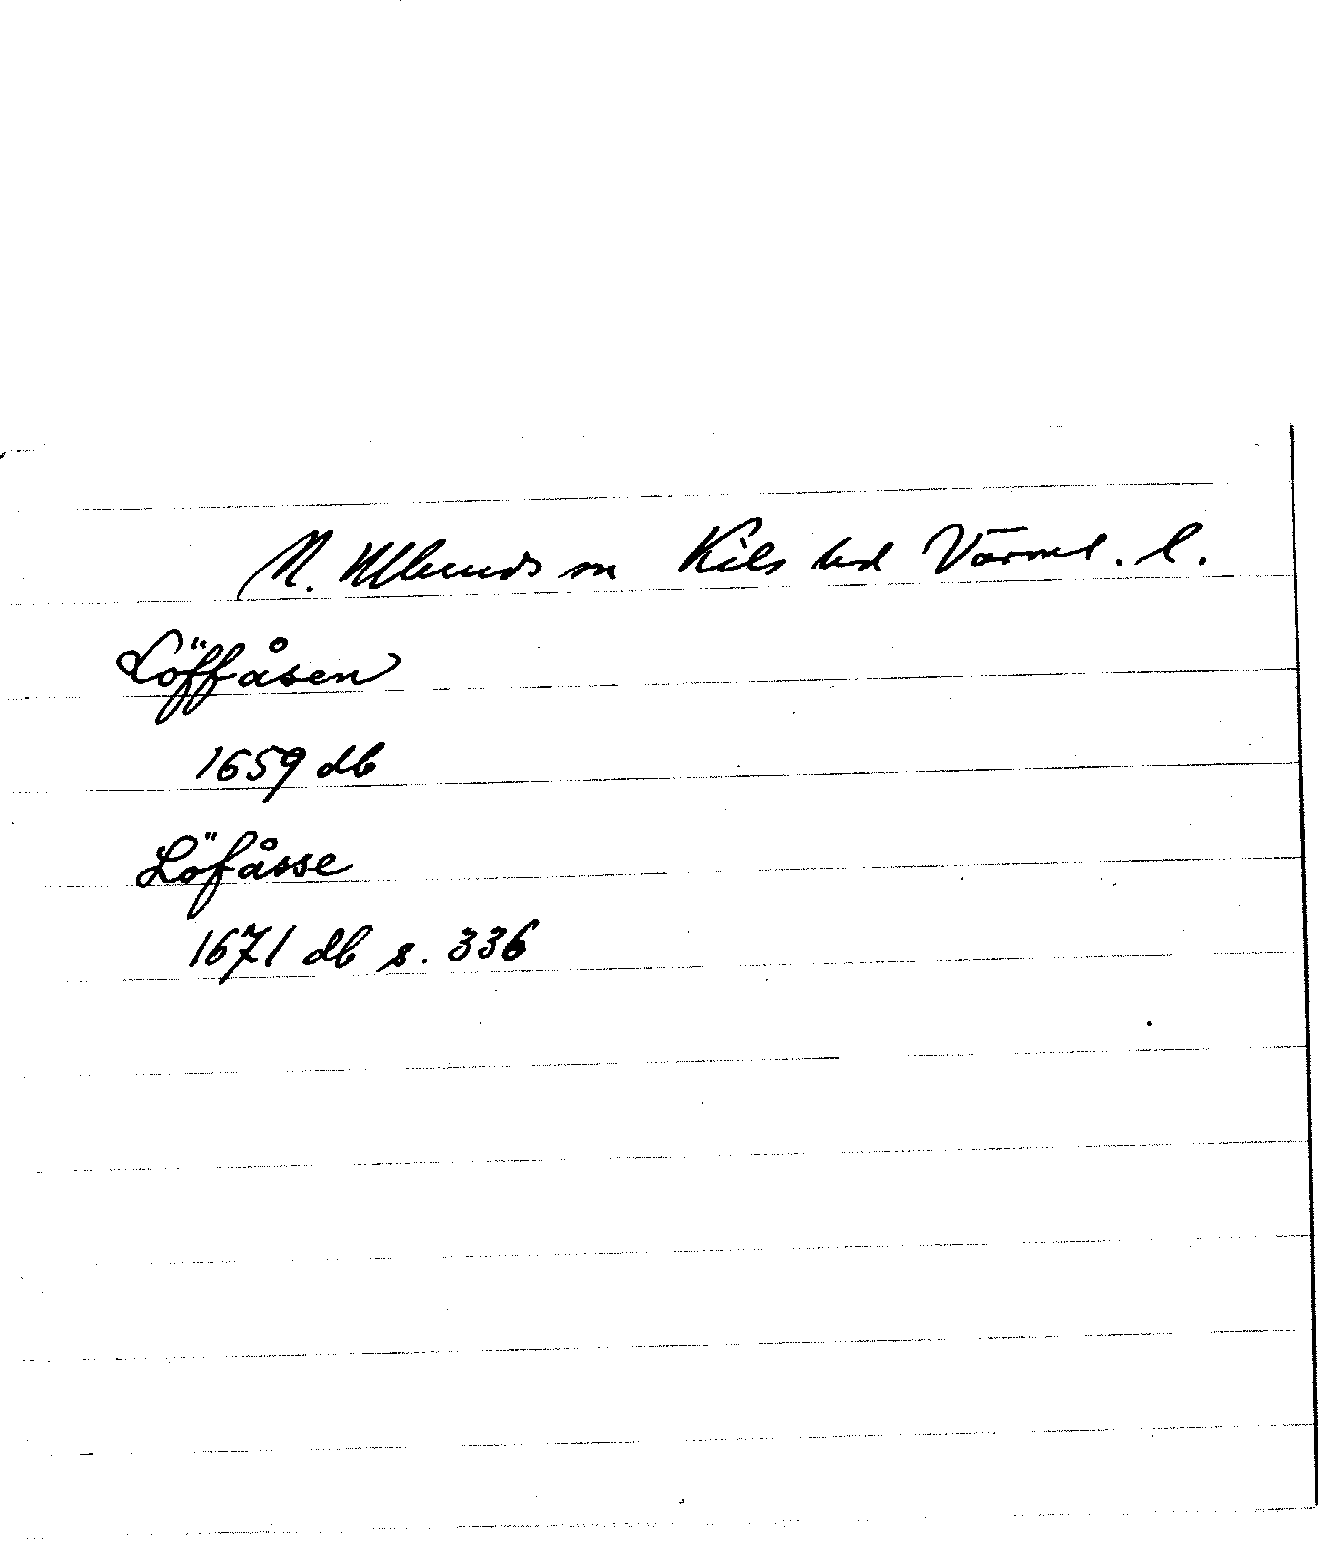 N. Ullerud sn Kils hd Värml. l.
Löffåsen
1659 db
Löfåsse
1671 db s. 336